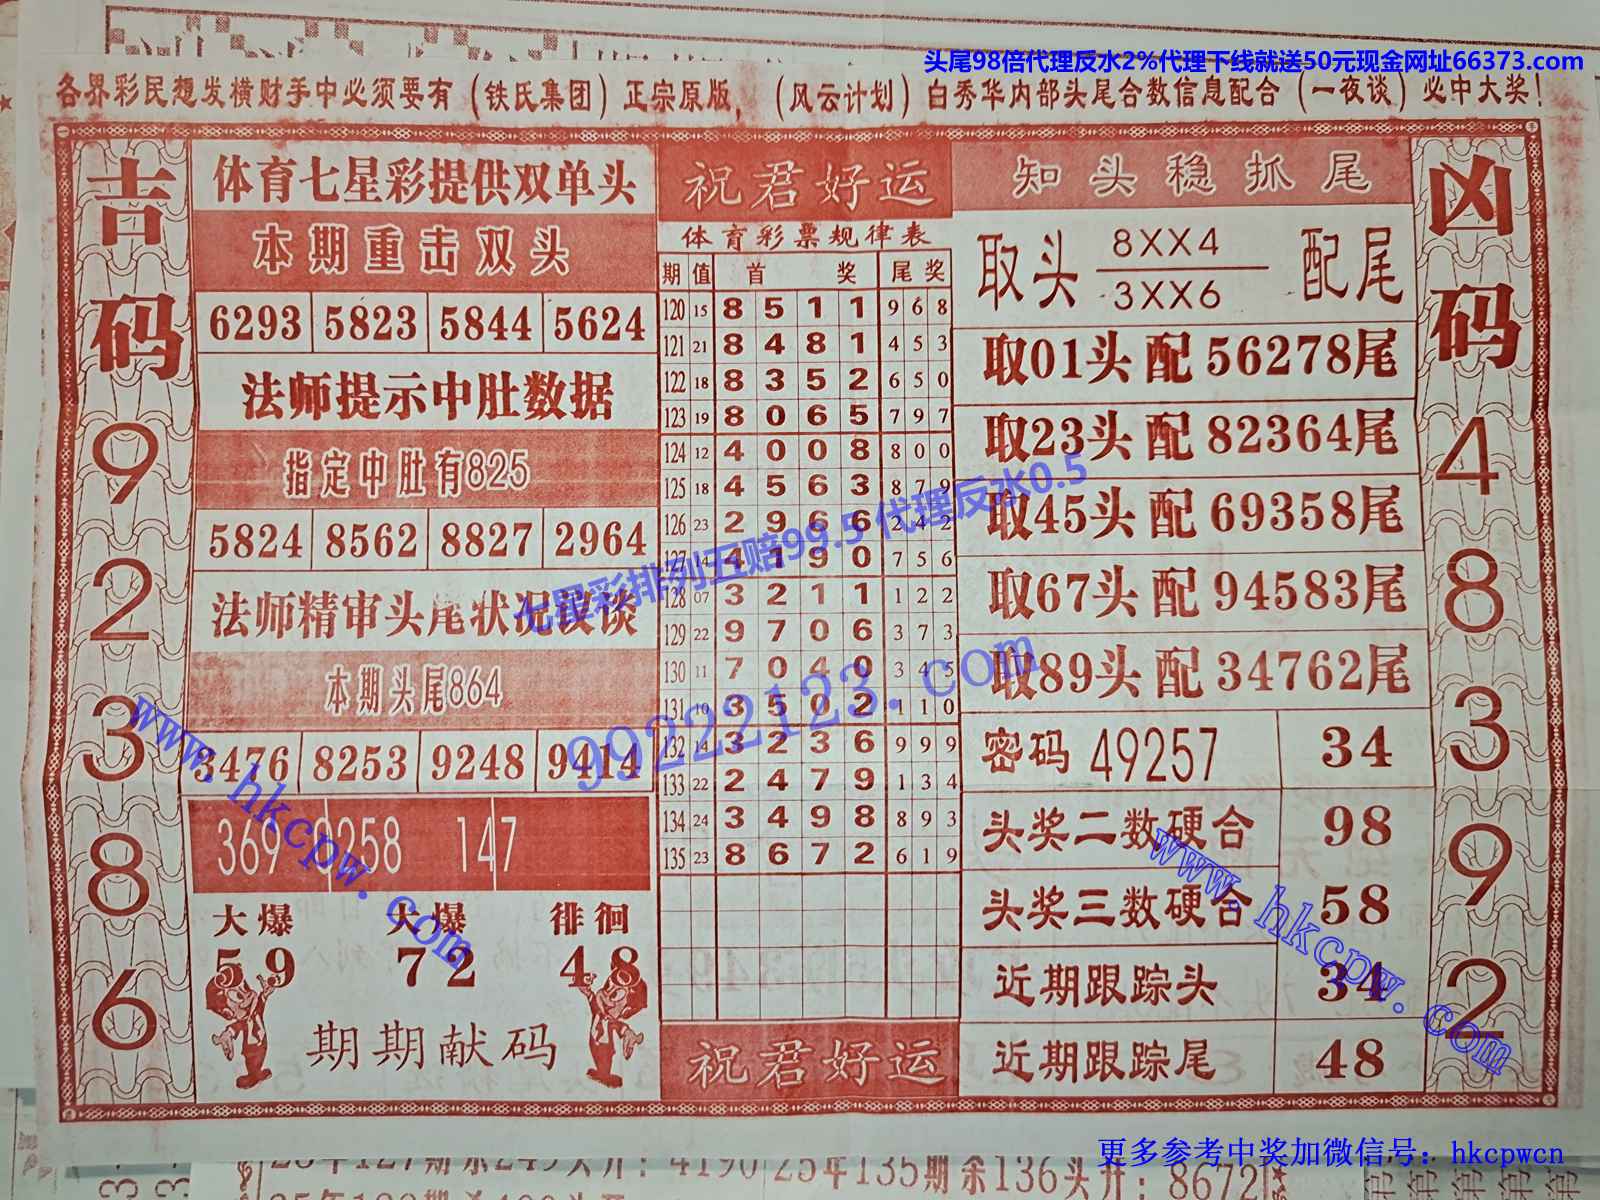 头尾98倍代理反水2%代理下线就送50元现金网址66373.com
各界彩民想发横财手中必须要有（铁氏集团）正宗原版，（风云计划）白秀华内部头尾合数信息配合（一夜谈）必中大奖！
吉码
9
2
3
8
6
体育七星彩提供双单头
本期重击双头
6293 5823 5844 5624
法师提示中肚数据
指定中肚有825
5824 8562 8827 2964
法师精审头尾状况谈
本期头尾864
3476 8253 9248 9414
369 0258 147
大爆 大爆 徘徊
59 72 48
期期献码
祝君好运
体育彩票规律表
期 值 首 奖 尾 奖
120 15 8 5 1 1 9 6 8
121 21 8 4 8 1 4 5 3
122 18 8 3 5 2 6 5 0
123 19 8 0 6 5 7 9 7
124 12 4 0 0 8 8 0 0
125 18 4 5 6 3 8 7 9
126 23 2 9 6 6 2 4 2
127 14 4 1 9 0 7 5 6
128 07 3 2 1 1 1 2 2
129 22 9 7 0 6 3 7 3
130 11 7 0 4 0 3 4 5
131 10 3 5 0 2 1 1 0
132 14 3 2 3 6 9 9 9
133 22 2 4 7 9 1 3 4
134 24 3 4 9 8 8 9 3
135 23 8 6 7 2 6 1 9
祝君好运
知头稳抓尾
取头 8XX4 配尾
3XX6
取01头 配 56278尾
取23头 配 82364尾
取45头 配 69358尾
取67头 配 94583尾
取89头 配 34762尾
密码 49257 34
头奖二数硬合 98
头奖三数硬合 58
近期跟踪头 34
近期跟踪尾 48
凶码
4
8
3
9
2
七星彩排列五赔99.5 代理反水0.5
99222123.com
www.hkcpw.com
www.hkcpw.com
更多参考中奖加微信号：hkcpwcn
4190 25年135期余136头开：8672